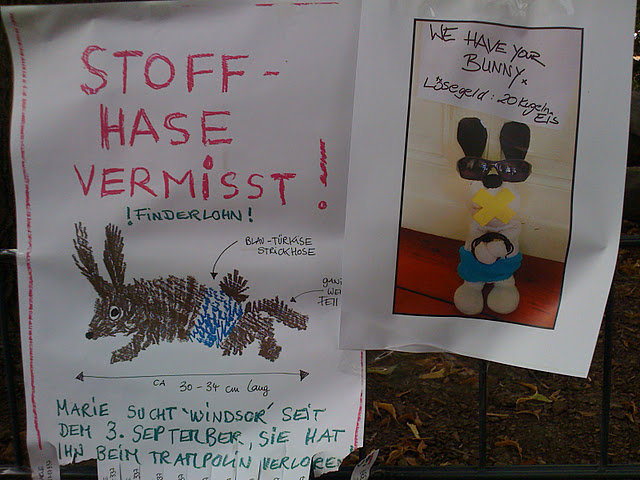 STOFF-
HASE
VERMISST!
!FINDERLOHN!
BLAU-TÜRKISE
STRICKHOSE
CA 30-34 cm lang
MARIE SUCHT 'WINDSOR' SEIT
DEM 3. SEPTEMBER, SIE HAT
IHN BEIM TRAMPOLIN VERLOREN
WE HAVE YOUR
BUNNY.
Lösegeld: 20 Kugeln
Eis